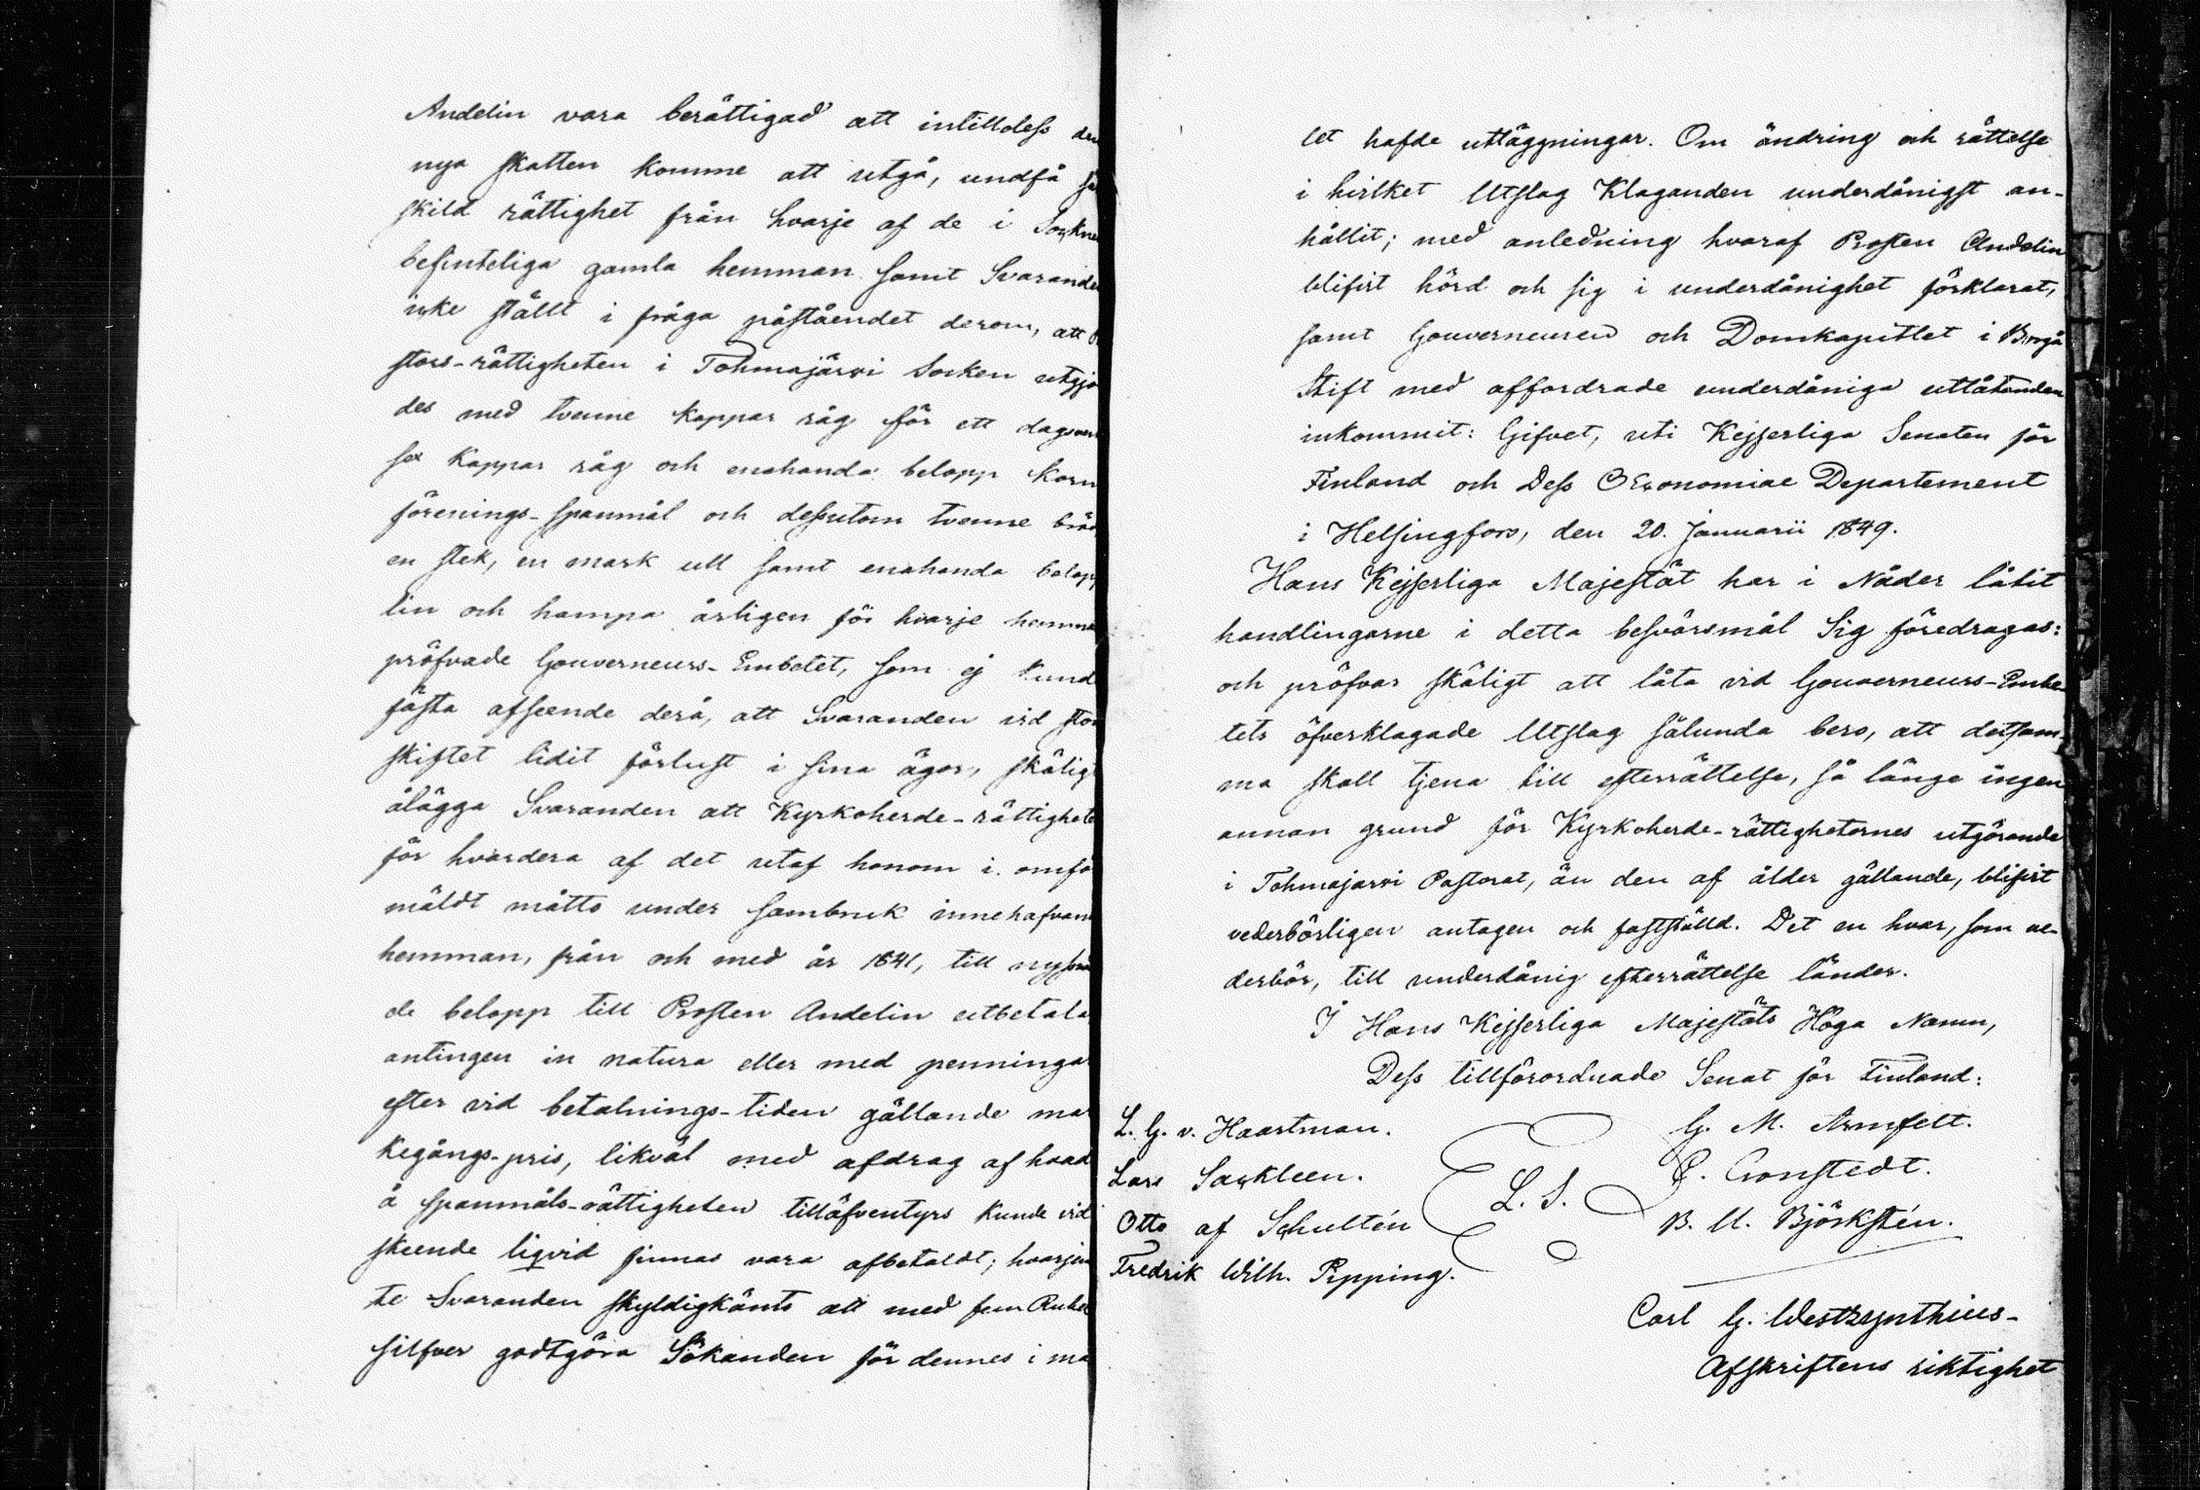 Andelin vara berättigad att intilldess den
nya skatten komme att utgå, undfå sär
skild rättighet från hvarje af de i Sockne
befinteliga gamla hemman samt Svarande
icke ställt i fråga påståendet derom, att
stors-rättigheten i Tohmajärvi Socken utgjor
des med tvenne kappar råg för ett dagsver
sex kappar råg och enahanda belopp korn
förenings-spanmål och dessutom tvenne bröd
en stek, en mark ull samt enahanda belopp
lin och hampa årligen för hvarje hemma
pröfvade Gouverneurs-Embetet, som ej kund
fästa afseende derå, att Svaranden vid stor
skiftet lidit förlust i sina ägor, skäligt
ålägga Svaranden att Kyrkoherde-rättighete
för hvardera af det utaf honom i omför
mäldt måtto under sambruk innehafvand
hemman, från och med år 1841, till nyssnäm
de belopp till Prosten Andelin utbetala
antingen in natura eller med penningar
efter vid betalnings-tiden gällande mar
kegångs-pris, likväl med afdrag af hvad
å spanmåls-rättigheten tilläfventyrs kunde vid
skeende liqvid finnas vara afbetaldt; hvarjem
te Svaranden skyldigkänts att med fem Rubel
silfver godtgöra Sökanden för dennes i må
let hafde utläggningar. Om ändring och rättelse
i hvilket Utslag Klaganden underdånigst an-
hållit; med anledning hvaraf Prosten Andelin
blifvit hörd och sig i underdånighet förklarat,
samt Gouverneuren och Domkapitlet i Borgå
Stift med affordrade underdåniga utlåtanden
inkommit: Gifvet, uti Kejserliga Senaten för
Finland och Dess OEconomiae Departement
i Helsingfors, den 20. Januarii 1849.
Hans Kejserliga Majestät har i Nåder låtit
handlingarne i detta besvärsmål Sig föredragas:
och pröfvar skäligt att låta vid Gouverneurs-Embe-
tets öfverklagade Utslag sålunda bero, att detsam-
ma skall tjena till efterrättelse, så länge ingen
annan grund för Kyrkoherde-rättigheternes utgörande
i Tohmajarvi Pastorat, än den af ålder gällande, blifvit
vederbörligen antagen och fastställd. Det en hvar, som ve-
derbör, till underdånig efterrättelse länder.
I Hans Kejserliga Majestäts Höga Namn,
Dess tillförordnade Senat för Finland:
L. G. v. Haartman. G. M. Armfelt.
Lars Sackleen. L. S. C. Cronstedt.
Otto af Schultén B. U. Björkstén.
Fredrik Wilh. Pipping.
Carl G. Westzynthius-
Afskriftens riktighet